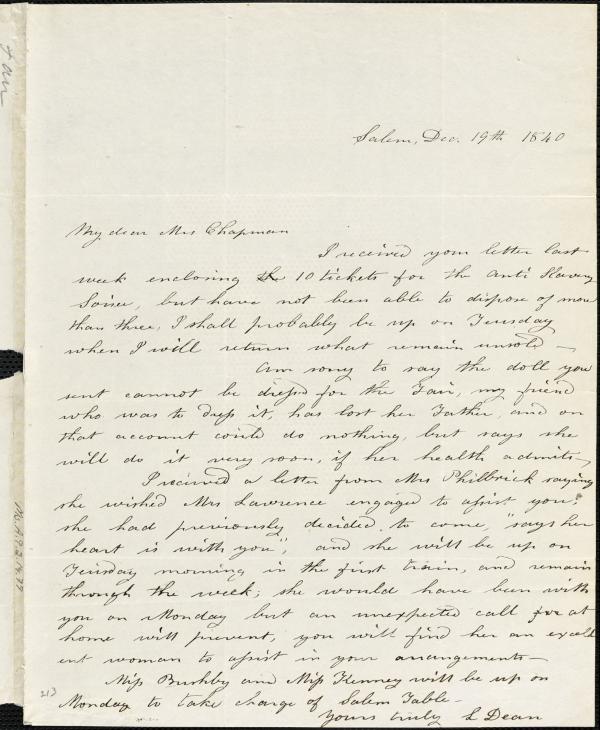 Fair
Salem, Dec. 19th 1840
My dear Mrs Chapman
I received your letter last
week encloring the 10 tickets for the Anti Slavery
Soiree, but have not been able to dispose of more
than three, I shall probably be up on Teusday
when I will return what remain unsold—
Am sorry to say the doll you
sent cannot be dressed for the Fair, my friend
who was to dress it, has lost her Father, and on
that account could do nothing, but says she
will do it very soon, if her health admits—
I received a letter from Mrs Philbrick saying
she wished Mrs Lawrence engaged to assist you;
she had previously decided to come, "says her
heart is with you", and she will be up on
Teusday morning in the first train, and remain
through the week; she would have been with
you on Monday but an unexpected call for at
home will prevent, you will find her an excell
ent woman to assist in your arrangements—
Miss Bushby and Miss Kenney will be up on
Monday to take charge of Salem Table—
Yours truly L Dean
213